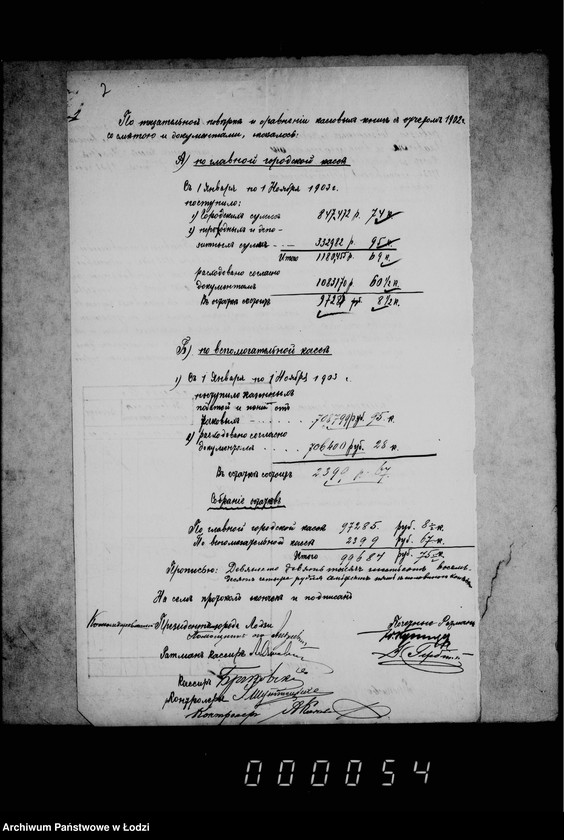 2
По тщательной поверке и сравнении кассовых книг с отчетом 1902 г.
со сметою и документами, оказалось:
А) по главной городской кассе
Съ 1 Января по 1 Ноября 1903 г.
поступило:
1) Городскихъ суммъ 847,472 р. 74 к.
2) переходныхъ и депо-
зитныхъ суммъ - - 332982 р. 95 к.
Итого 1180455 р. 69 к.
расходовано согласно
документамъ 1083170 р. 60½ к.
Въ остаткѣ состоитъ 97285 руб. 8½ к.
Б) по вспомогательной кассѣ
1) Съ 1 Января по 1 Ноября 1903 г.
поступило казенныхъ
податей и пеней отъ
708799 руб. 95 к.
2) расходовано согласно
документамъ . . . . 706400 руб. 28 к.
Въ остаткѣ состоитъ 2399 р. 67
Собраніе остатковъ
По главной городской кассѣ 97285 руб. 8½ к.
По вспомогательной кассѣ 2399 руб. 67 к.
Итого 99684 руб. 75½ к.
Прописью: Девяносто девять тысячъ шестьсотъ восемь-
десятъ четыре рубля семьдесятъ пять съ половиною копѣекъ
На семъ протоколъ оконченъ и подписанъ
Президентъ города Лодзи
Ратманъ кассиръ
Кассиръ
Контролеръ
Контролеръ
000054
Archiwum Państwowe w Łodzi